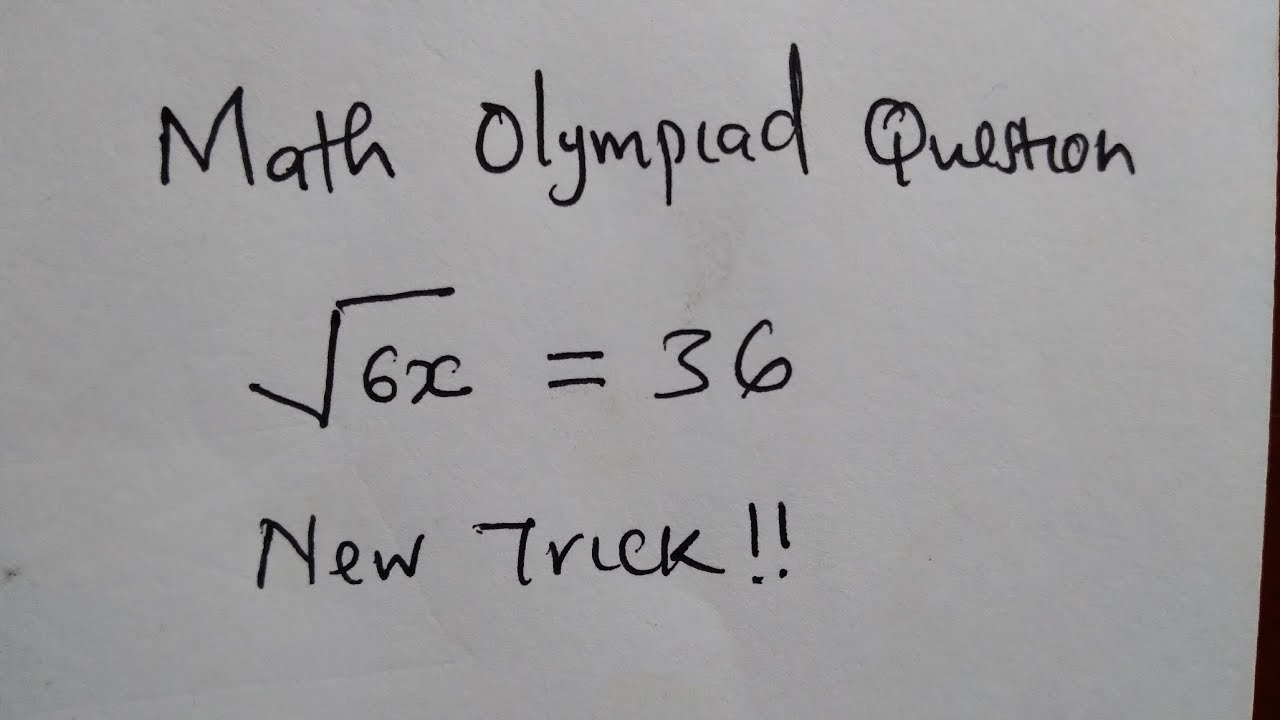 Math Olympiad Question
√6x = 36
New Trick!!